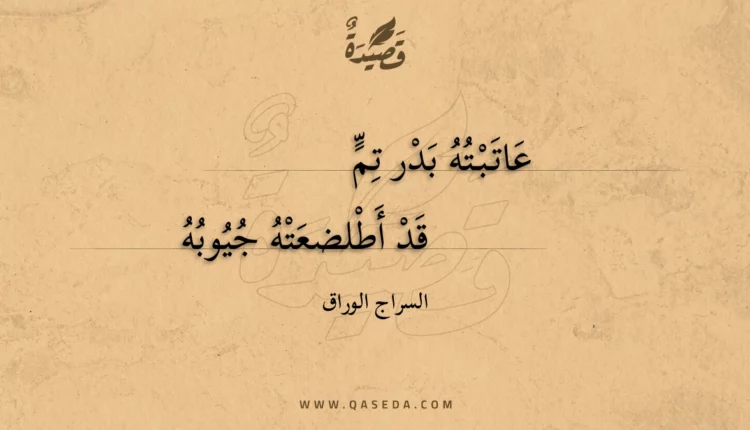 قَصِيْدَةٌ
عَاتَبْتُهُ بَدْر تِمٍّ
قَدْ أَطْلضعَتْهُ جُيُوبُهُ
السراج الوراق
WWW.QASEDA.COM